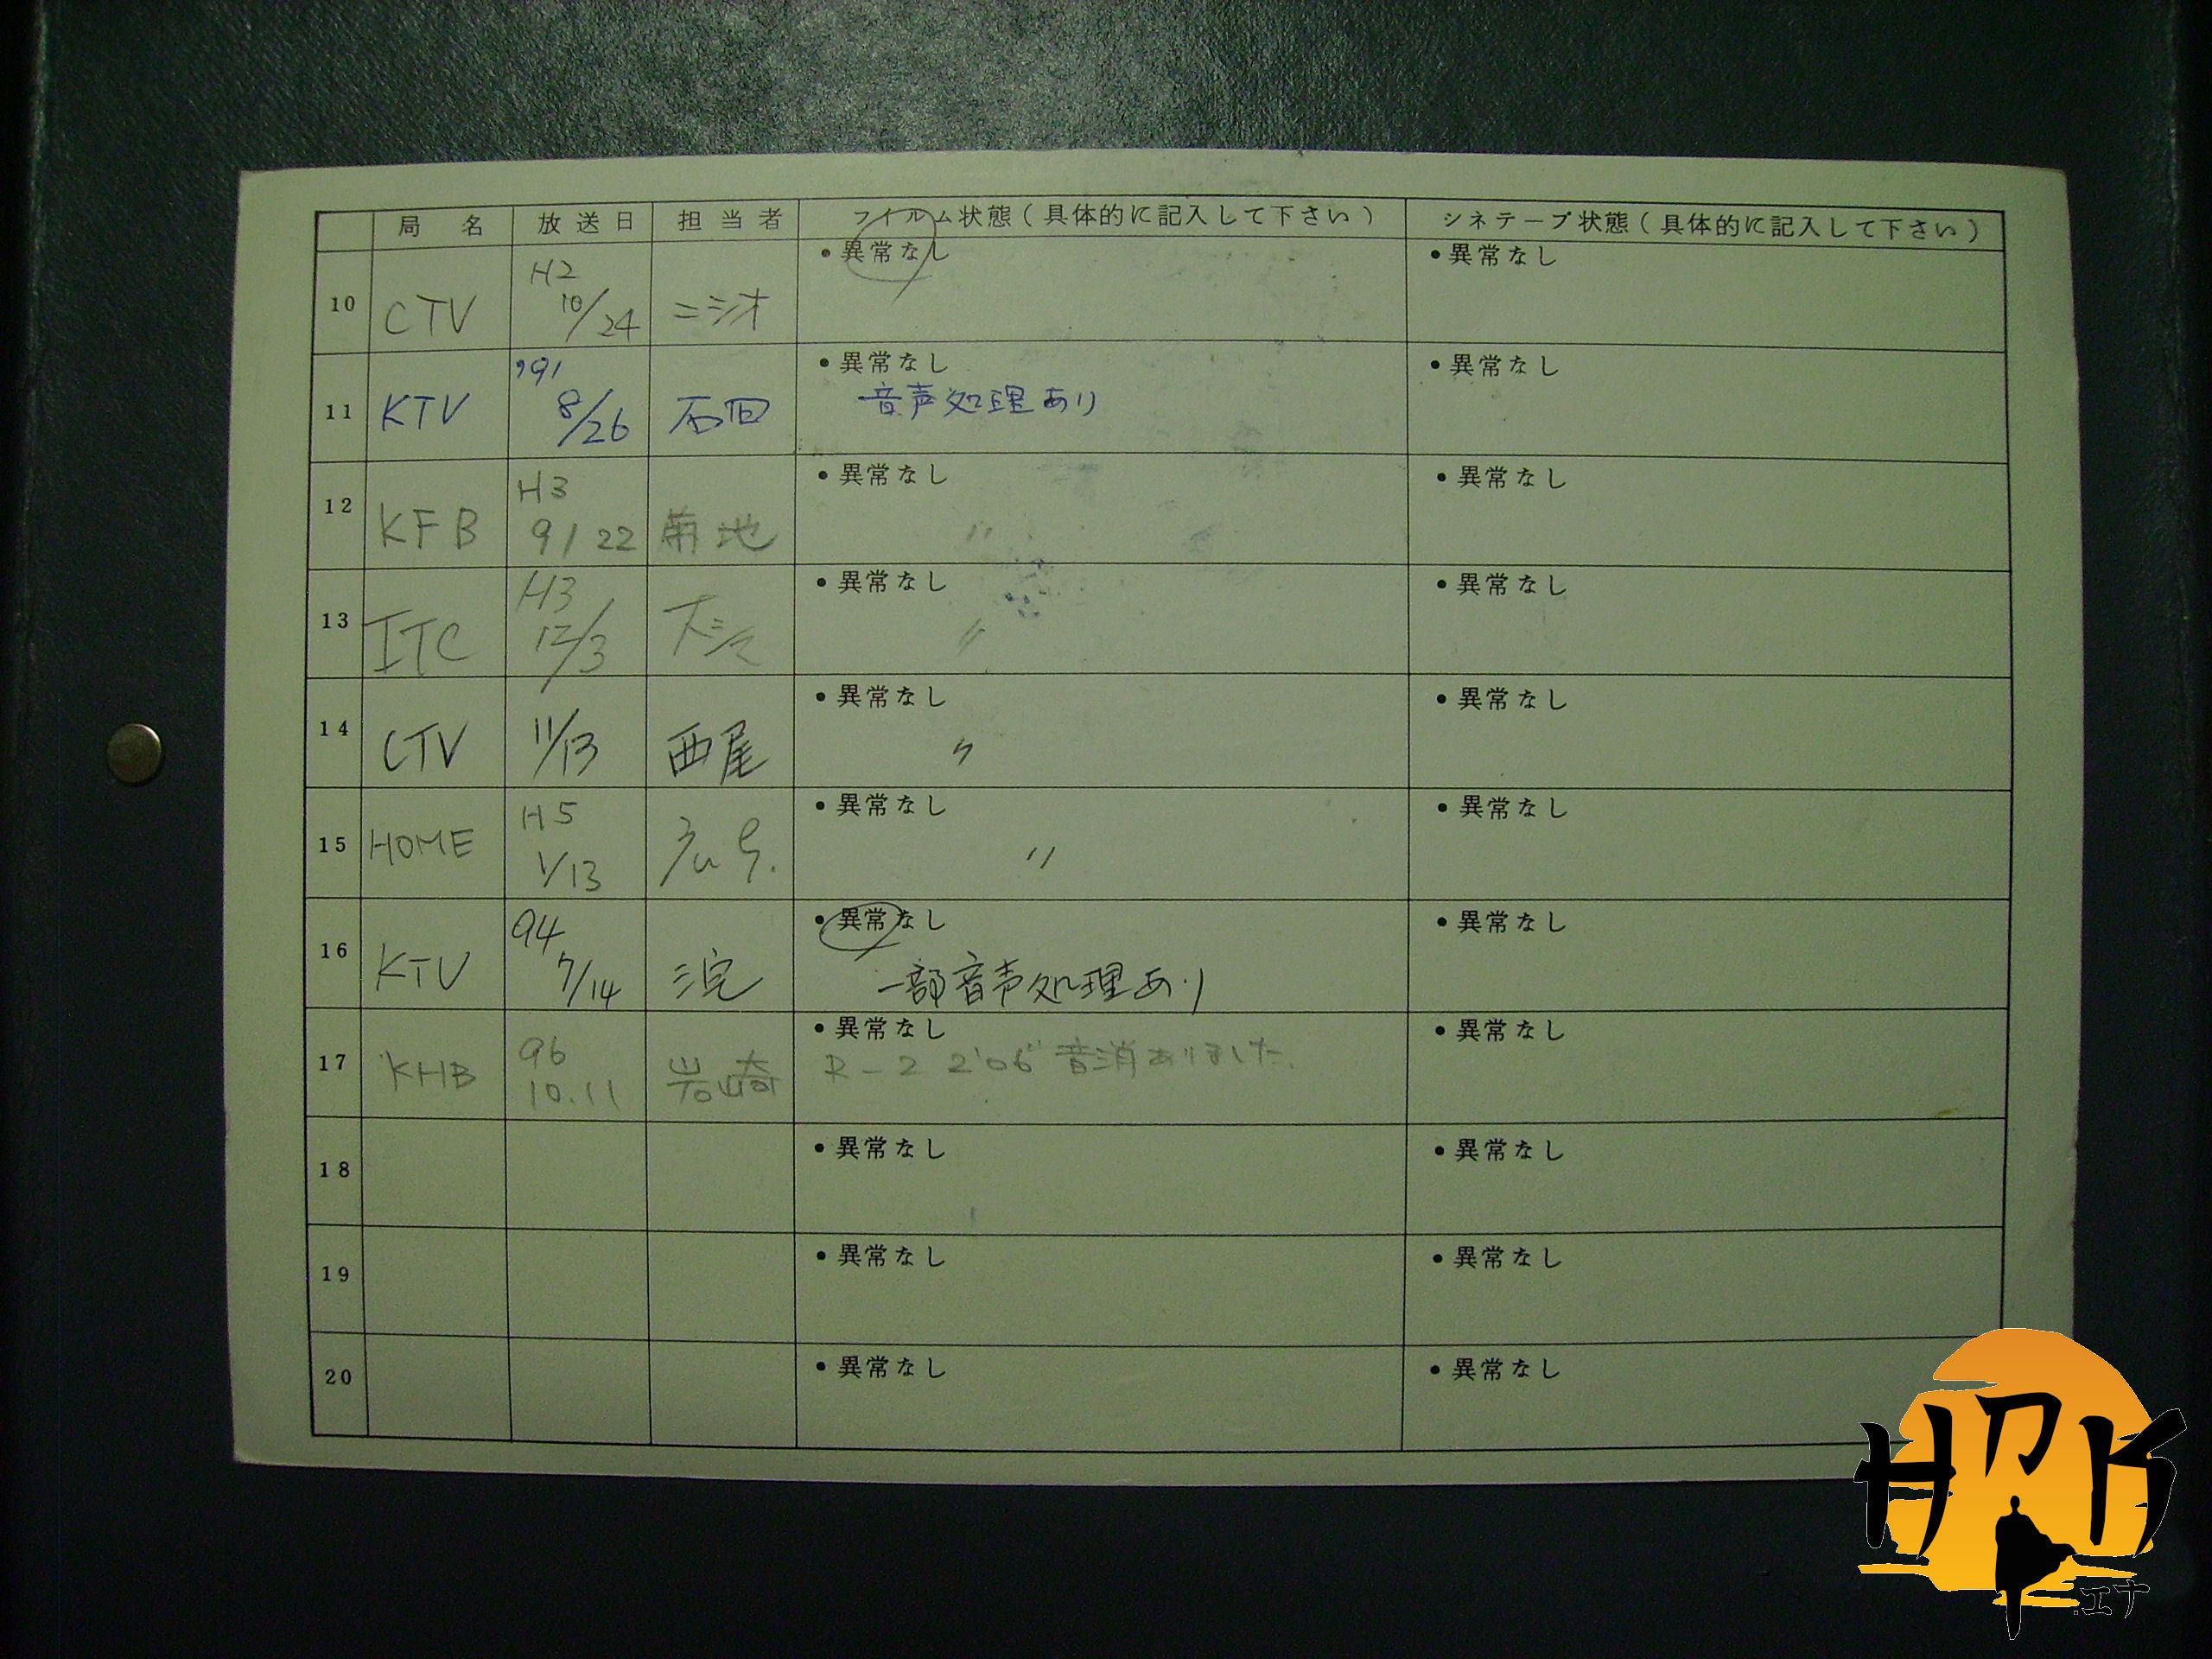 局名 放送日 担当者 フイルム状態(具体的に記入して下さい) シネテープ状態(具体的に記入して下さい)
10 CTV H2 10/24 ニシオ •異常なし •異常なし
11 KTV '91 8/26 石田 •異常なし •異常なし
音声処理あり
12 KFB H3 9/22 菊地 •異常なし •異常なし
〃
13 ITC H3 12/3 •異常なし •異常なし
〃
14 CTV 11/13 西尾 •異常なし •異常なし
〃
15 HOME H5 1/13 •異常なし •異常なし
〃
16 KTV 94 7/14 •異常なし •異常なし
一部音声処理あり
17 KHB 96 10.11 岩崎 •異常なし •異常なし
R-2 2'06" 音消ありました.
18 •異常なし •異常なし
19 •異常なし •異常なし
20 •異常なし •異常なし
HDK
.エナ